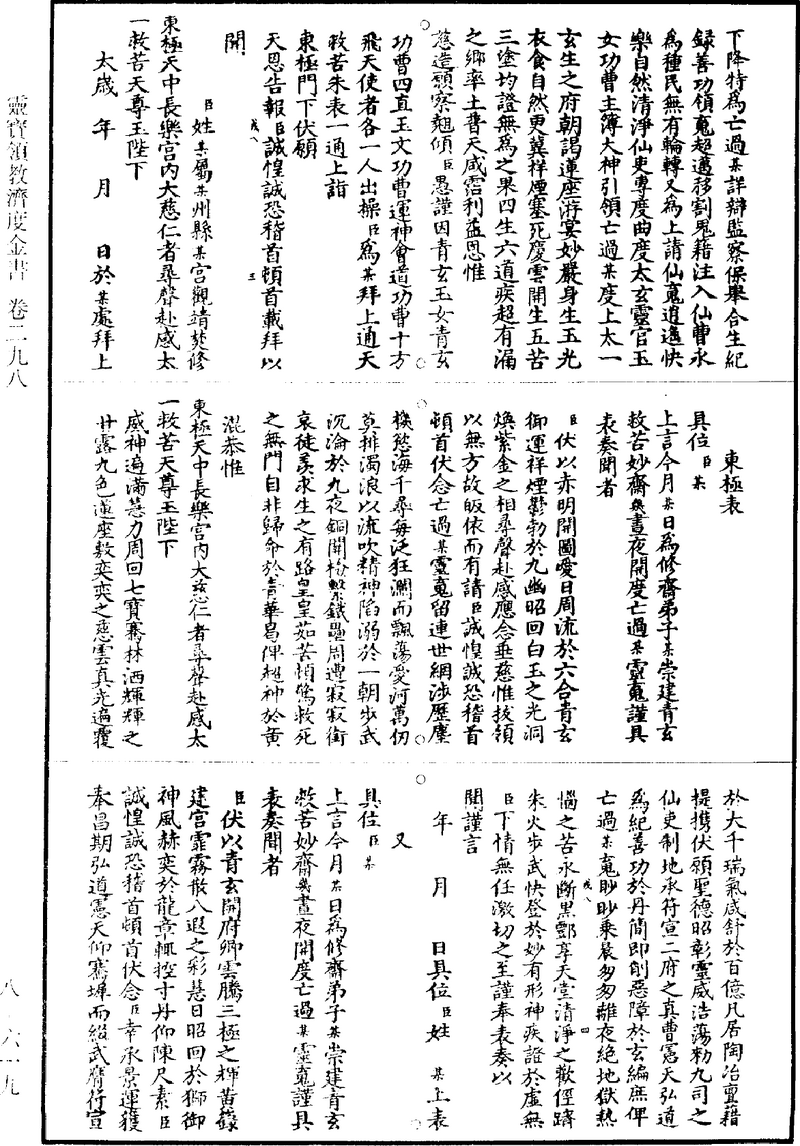 下降特為亡過某詳辯監察保舉合生紀
録善功領䰟超邁移割鬼籍注入仙曹永
為種民無有輪轉又為上請仙䰟逍遙快
樂自然清淨仙吏專度曲度太玄靈官玉
女功曹主簿大神引領亡過某度上太一
玄生之府朝謁蓮座游宴妙嚴身生玉光
衣食自然更冀祥煙塞死慶雲開生五苦
三塗均證無為之果四生六道疾超有漏
之鄉率土普天咸霑利益恩惟
慈造願察翹傾臣愚謹因青玄玉女青玄
功曹四直玉文功曹運神會道功曹十方
飛天使者各一人出操臣為某拜上通天
救苦朱表一通上詣
東極門下伏願
天恩告報臣誠惶誠恐稽首頓首載拜以
聞
臣姓某屬某州縣某宮觀靖焚修
東極天中長樂宮內大慈仁者尋聲赴感太
一救苦天尊玉陛下
太歲 年 月 日於某處拜上
東極表
具位臣某
上言今月某日為修齋弟子某崇建青玄
救苦妙齋幾晝夜開度亡過某靈䰟謹具
表奏聞者
臣伏以赤明開圖愛日周流於六合青玄
御運祥煙鬱勃於九幽昭回白玉之光洞
煥紫金之相尋聲赴感應念垂慈惟拔領
以無方故皈依而有請臣誠惶誠恐稽首
頓首伏念亡過某靈䰟留連世網涉歷塵
機慾海千尋每泛狂瀾而飄蕩愛河萬仞
莫排濁浪以流吹精神陷溺於一朝步武
沉淪於九夜銅關檢繫鐵壘周遭寂寂銜
哀徒羨求生之有路皇皇茹苦頓驚救死
之無門自非歸命於青華曷俾超神於黃
混恭惟
東極天中長樂宮內大慈仁者尋聲赴感太
一救苦天尊玉陛下
威神遍滿慧力周回七寶騫林洒輝輝之
甘露九色蓮座敷奕奕之慈雲真光遍覆
於大千瑞氣咸舒於百億凡居陶冶亶藉
提攜伏願聖德昭彰靈威浩蕩勑九司之
仙吏制地承符宣二府之真曹憲天弘道
為紀善功於丹簡即削惡障於玄編庶俾
亡過某䰟眇眇乘晨匆匆離夜絶地獄熱
惱之苦永斷黑酆享天堂清淨之歡徑躋
朱火步武快登於妙有形神疾證於虛無
臣下情無任激切之至謹奉表奏以
聞謹言
年 月 日具位臣姓 某上表
又
具位臣某
上言今月某日為修齋弟子某崇建青玄
救苦妙齋幾晝夜開度亡過某靈䰟謹具
表奏聞者
臣伏以青玄開府卿雲騰三極之輝黃籙
建宮霏霧散八遐之彩慧日昭回於獅御
神風赫奕於龍章輒控寸丹仰陳尺素臣
誠惶誠恐稽首頓首伏念臣幸承景運獲
奉昌期弘道憲天仰騫墀而綴武膺符宣
靈寶領教濟度金書 卷二九八
八·六一九